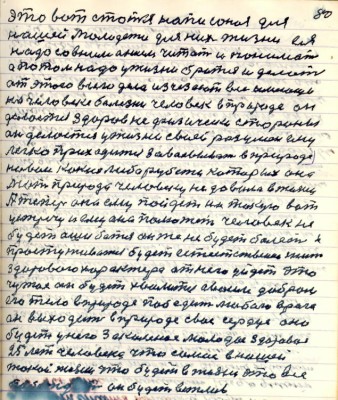 80
это вот статья написоная для
нашей молодежи для них жизни ея
надо со вниманием читат и понимат
а потом надо у жизни братся и делат
от этого всего дела изчезают все имеющи
на человеке балезни человек в природе он
делается здоров не физически стороны
он делается у жизни своей разумом ему
легко приходится завоевыват в природе
новыи какие либо рубежи каторых она
мат природа человеку не довала в жизни
А теперь она ему пойдет на такую вот
уступку и ему она поможет человек не
будет ошибатся он же не будет болет и
простуживатся будет естественного типа
здорового характера от него уйдет это
чужая он будет хвалится своим добром
его тело в природе победит любого врага
он выходит в природе свое сердце оно
будет у него закаленое молодое здоровое
25 лет человека что самый в нашей
такой жизни это будет в жизни это все
он будет вежлив